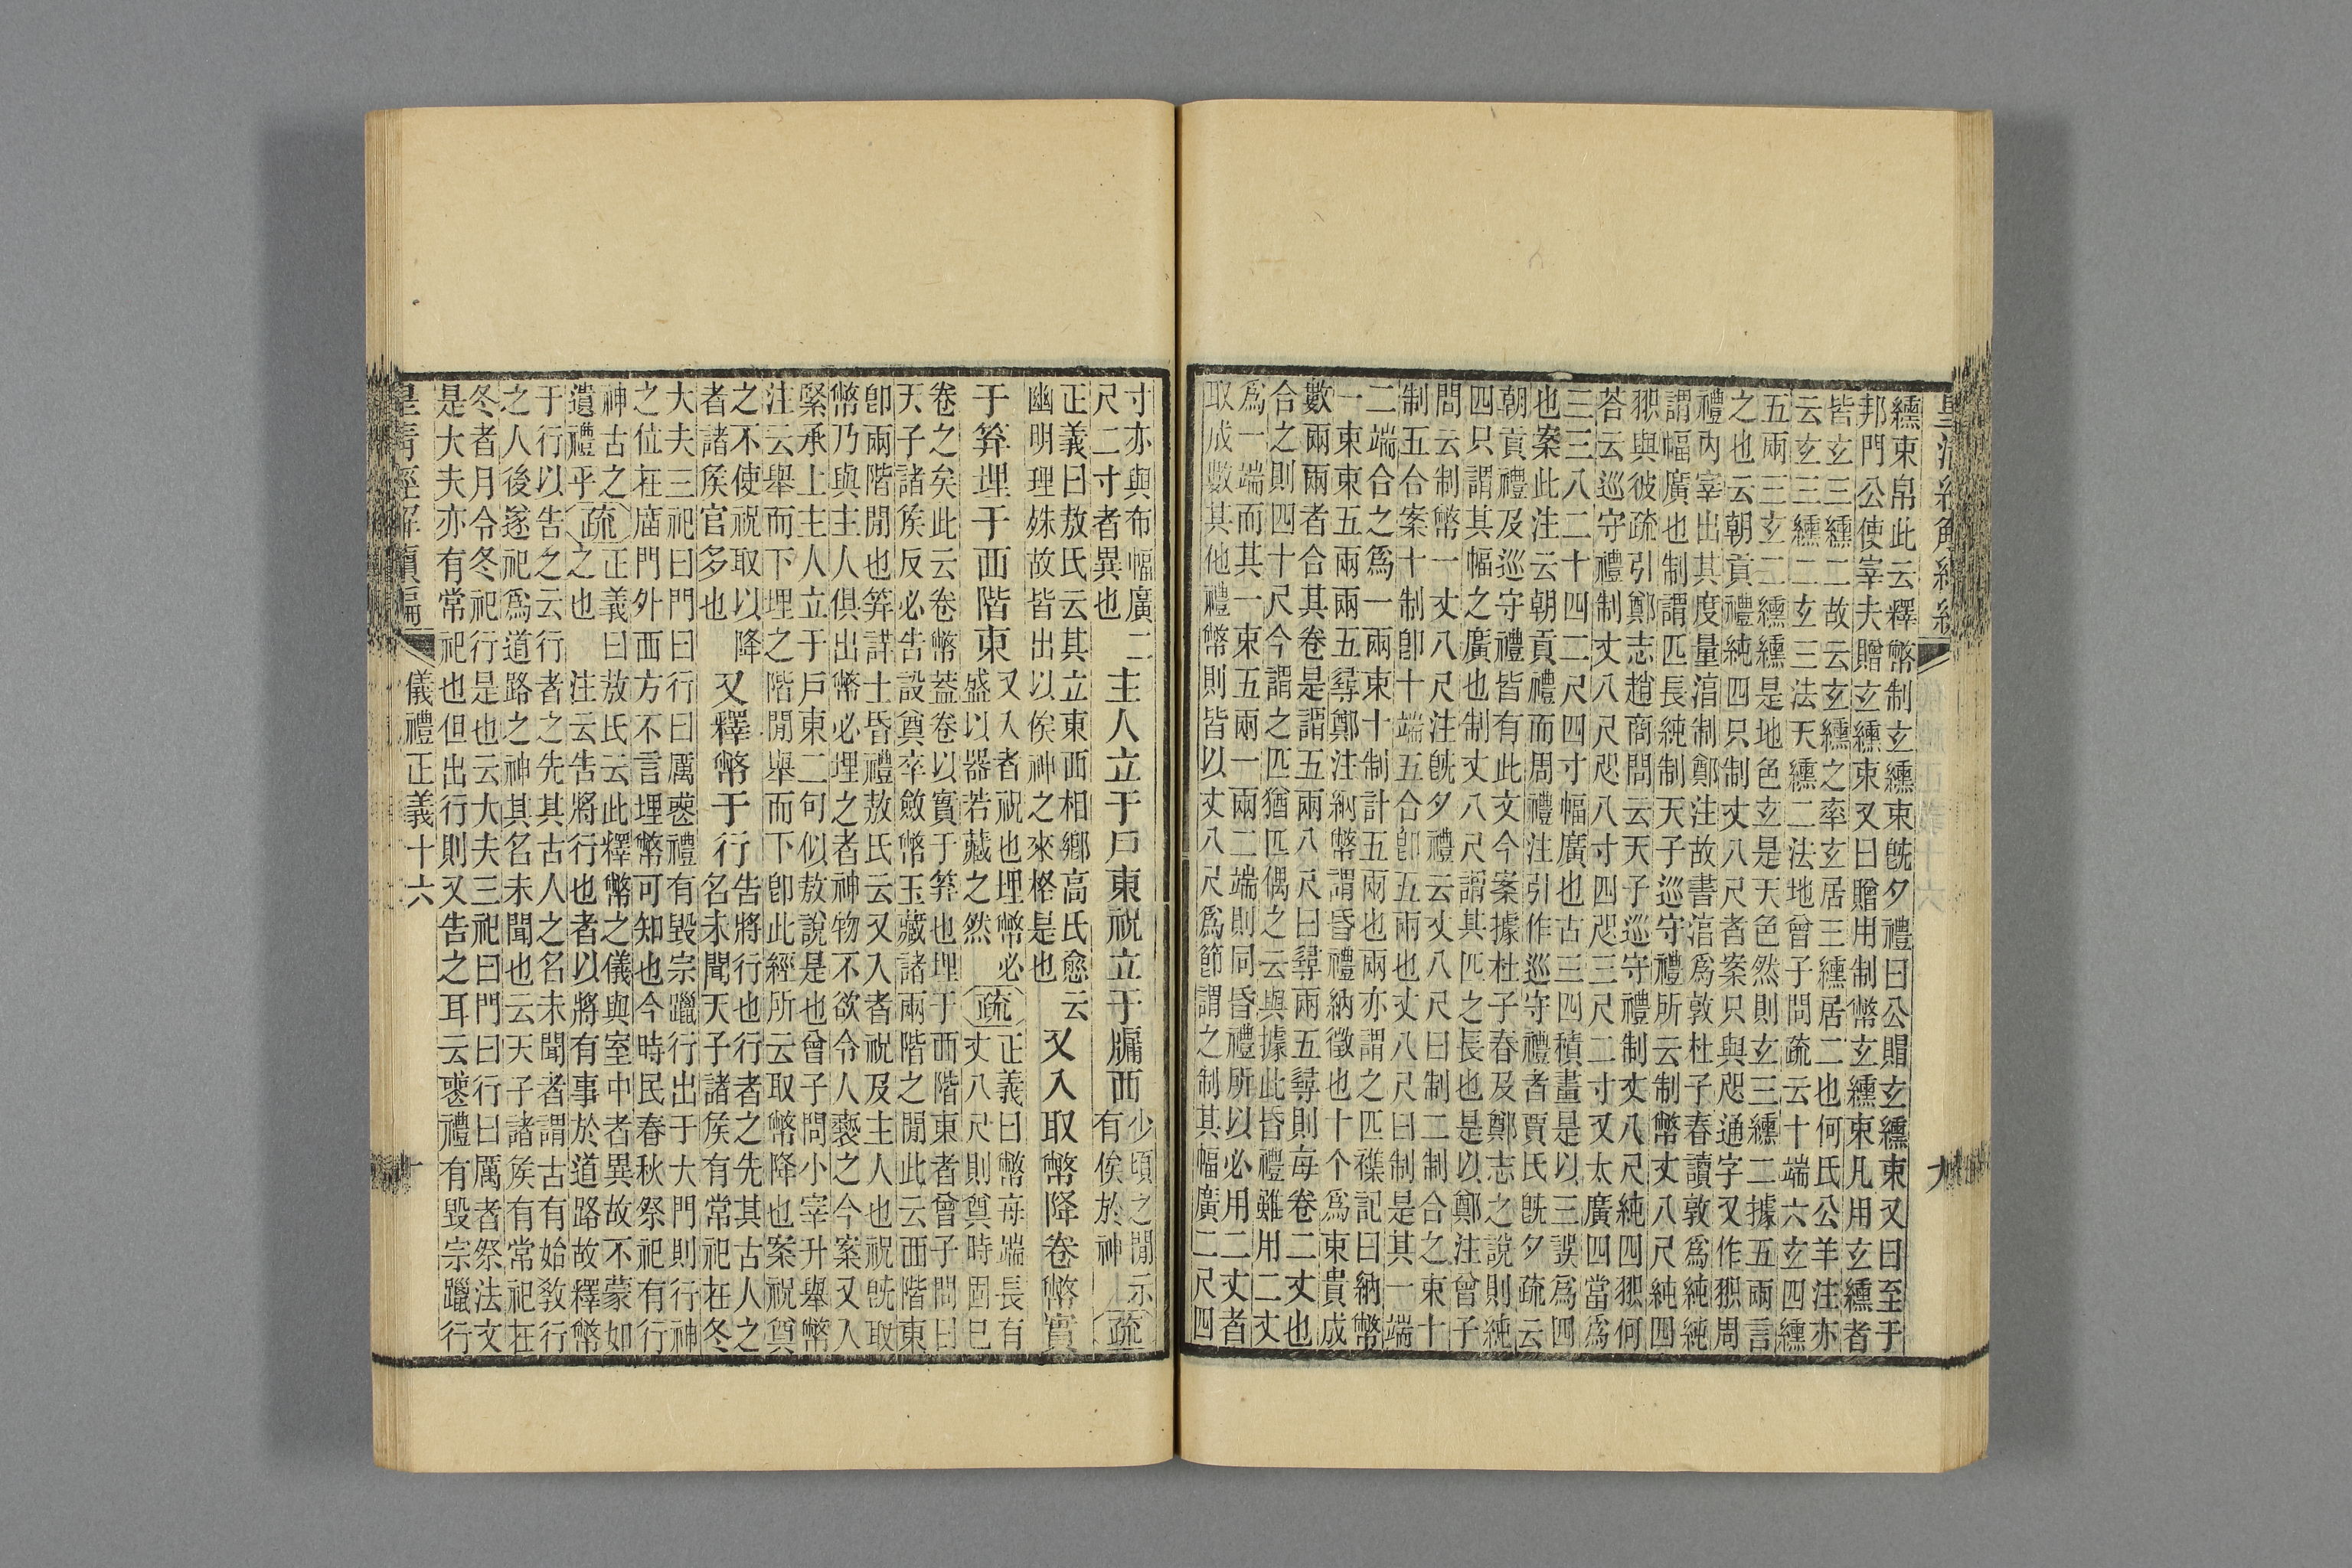 皇清經解續編
九
纁束帛此云釋幣制玄纁束旣夕禮曰公賵玄纁束又曰至于
邦門公使宰夫贈玄纁束又曰贈用制幣玄纁束凡用玄纁者
皆玄三纁二故云玄纁之率玄居三纁居二也何氏公羊注亦
云玄三纁二玄三法天纁二法地曾子問疏云十端六玄四纁
五兩三玄二纁纁是地色玄是天色然則玄三纁二據五兩言
之也云朝貢禮純四只制丈八尺者案只與咫通字又作𤝔周
禮內宰出其度量淳制鄭注故書淳爲敦杜子春讀敦爲純純
謂幅廣也制謂匹長純制天子巡守禮所云制幣丈八尺純四
𤝔與彼疏引鄭志趙商問云天子巡守禮制丈八尺純四𤝔何
荅云巡守禮制丈八尺咫八寸四咫三尺二寸又太廣四當爲
三三八二十四二尺四寸幅廣也古三四積畫是以三誤爲四
也案此注云朝貢禮而周禮注引作巡守禮者賈氏旣夕疏云
朝貢禮及巡守禮皆有此文今案據杜子春及鄭志之說則純
四只謂其幅之廣也制丈八尺謂其匹之長也是以鄭注曾子
問云制幣一丈八尺注旣夕禮云丈八尺曰制二制合之束十
制五合案十制卽十端五合卽五兩也丈八尺曰制是其一端
二端合之爲一兩束十制計五兩也兩亦謂之匹襍記曰納幣
一束束五兩兩五尋鄭注納幣謂昏禮納徵也十个爲束貴成
數兩兩者合其卷是謂五兩八尺曰尋兩五尋則每卷二丈也
合之則四十尺今謂之匹猶匹偶之云與據此昏禮雖用二丈
爲一端而其一束五兩一兩二端則同昏禮所以必用二丈者
取成數其他禮幣則皆以丈八尺爲節謂之制其幅廣二尺四
寸亦與布幅廣二
尺二寸者異也
主人立于戶東祝立于牖西
少頃之閒示
有俟於神
疏
正義曰敖氏云其立東西相鄉高氏愈云
幽明理殊故皆出以俟神之來格是也
又入取幣降卷幣實
于筓埋于西階東
又入者祝也埋幣必
盛以器若藏之然
疏
正義曰幣每端長有
丈八尺則奠時固已
卷之矣此云卷幣蓋卷以實于筓也埋于西階東者曾子問曰
天子諸侯反必告設奠卒斂幣玉藏諸兩階之閒此云西階東
卽兩階閒也筓詳士昏禮敖氏云又入者祝及主人也祝旣取
幣乃與主人俱出幣必埋之者神物不欲令人褻之今案又入
緊承上主人立于戶東二句似敖說是也曾子問小宰升舉幣
注云舉而下埋之階閒舉而下卽此經所云取幣降也案祝奠
之不使祝取以降
者諸侯官多也
又釋幣于行
告將行也行者之先其古人之
名未聞天子諸侯有常祀在冬
大夫三祀曰門曰行曰厲䘮禮有毀宗躐行出于大門則行神
之位在廟門外西方不言埋幣可知也今時民春秋祭祀有行
神古之
遺禮乎
疏
正義曰敖氏云此釋幣之儀與室中者異故不蒙如
之也　注云告將行也者以將有事於道路故釋幣
于行以告之云行者之先其古人之名未聞者謂古有始敎行
之人後遂祀爲道路之神其名未聞也云天子諸侯有常祀在
冬者月令冬祀行是也云大夫三祀曰門曰行曰厲者祭法文
是大夫亦有常祀也但出行則又告之耳云䘮禮有毀宗躐行
皇清經解續編
儀禮正義十六
十